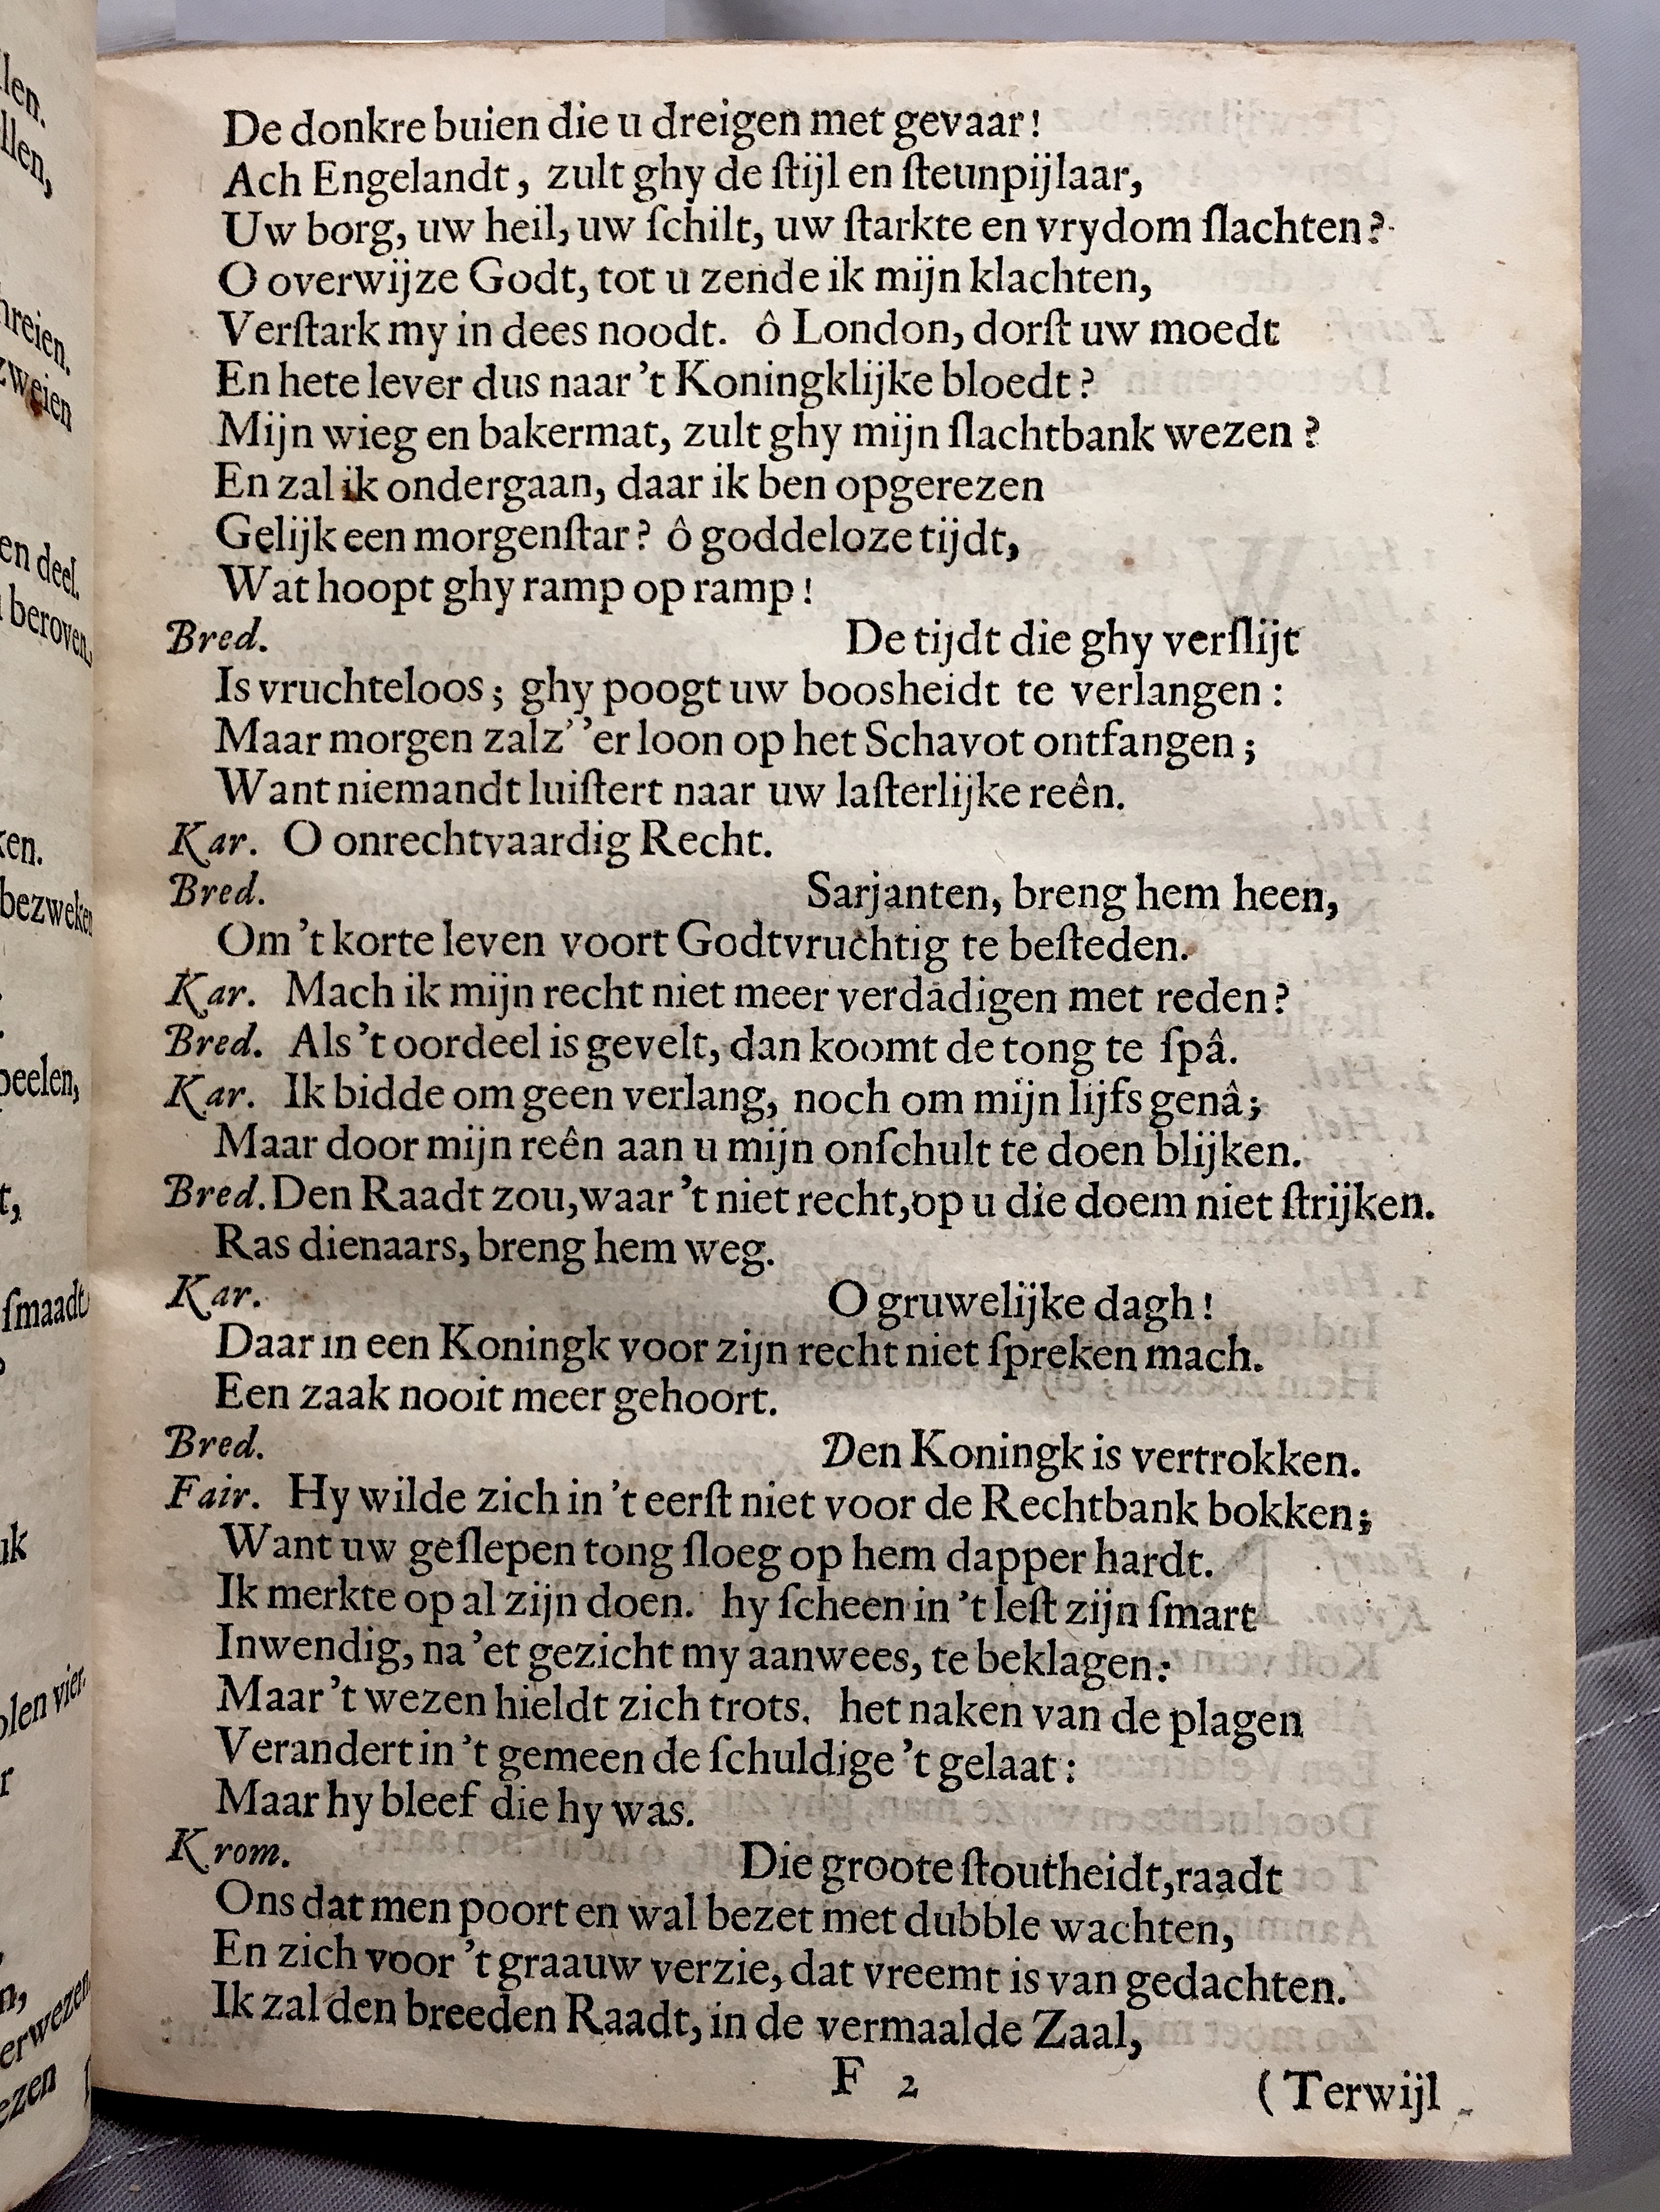 De donkre buien die u dreigen met gevaar!
Ach Engelandt, zult ghy de ſtijl en ſteunpijlaar,
Uw borg, uw heil, uw ſchilt, uw ſtarkte en vrydom ſlachten?
O overwijze Godt, tot u zende ik mijn klachten,
Verſtark my in dees noodt. ô London, dorſt uw moedt
En hete lever dus naar 't Koningklijke bloedt?
Mijn wieg en bakermat, zult ghy mijn ſlachtbank wezen?
En zal ik ondergaan, daar ik ben opgerezen
Gelijk een morgenſtar? ô goddeloze tijdt,
Wat hoopt ghy ramp op ramp!
Bred. De tijdt die ghy verſlijt
Is vruchteloos; ghy poogt uw boosheidt te verlangen:
Maar morgen zalz' 'er loon op het Schavot ontfangen;
Want niemandt luiſtert naar uw laſterlijke reên.
Kar. O onrechtvaardig Recht.
Bred. Sarjanten, breng hem heen,
Om 't korte leven voort Godtvruchtig te beſteden.
Kar. Mach ik mijn recht niet meer verdâdigen met reden?
Bred. Als 't oordeel is gevelt, dan koomt de tong te ſpâ.
Kar. Ik bidde om geen verlang, noch om mijn lijfs genâ;
Maar door mijn reên aan u mijn onſchult te doen blijken.
Bred. Den Raadt zou, waar 't niet recht, op u die doem niet ſtrijken.
Ras dienaars, breng hem weg.
Kar. O gruwelijke dagh!
Daar in een Koningk voor zijn recht niet ſpreken mach.
Een zaak nooit meer gehoort.
Bred. Den Koningk is vertrokken.
Fair. Hy wilde zich in 't eerſt niet voor de Rechtbank bokken;
Want uw geſlepen tong ſloeg op hem dapper hardt.
Ik merkte op al zijn doen. hy ſcheen in 't leſt zijn ſmart
Inwendig, na 'et gezicht my aanwees, te beklagen:
Maar 't wezen hieldt zich trots. het naken van de plagen
Verandert in 't gemeen de ſchuldige 't gelaat:
Maar hy bleef die hy was.
Krom. Die groote ſtoutheidt, raadt
Ons dat men poort en wal bezet met dubble wachten,
En zich voor 't graauw verzie, dat vreemt is van gedachten.
Ik zal den breeden Raadt, in de vermaalde Zaal,
F 2 (Terwijl